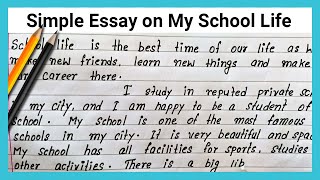 Simple Essay on My School Life
life is the best time of our life as
new friends, learn new things and make
career there.
I study in reputed private
my city, and I am happy to be a student of
school. My school is one of the most famous
schools in my city. It is very beautiful and
My school has all facilities for sports, studies
other activities. There is a big